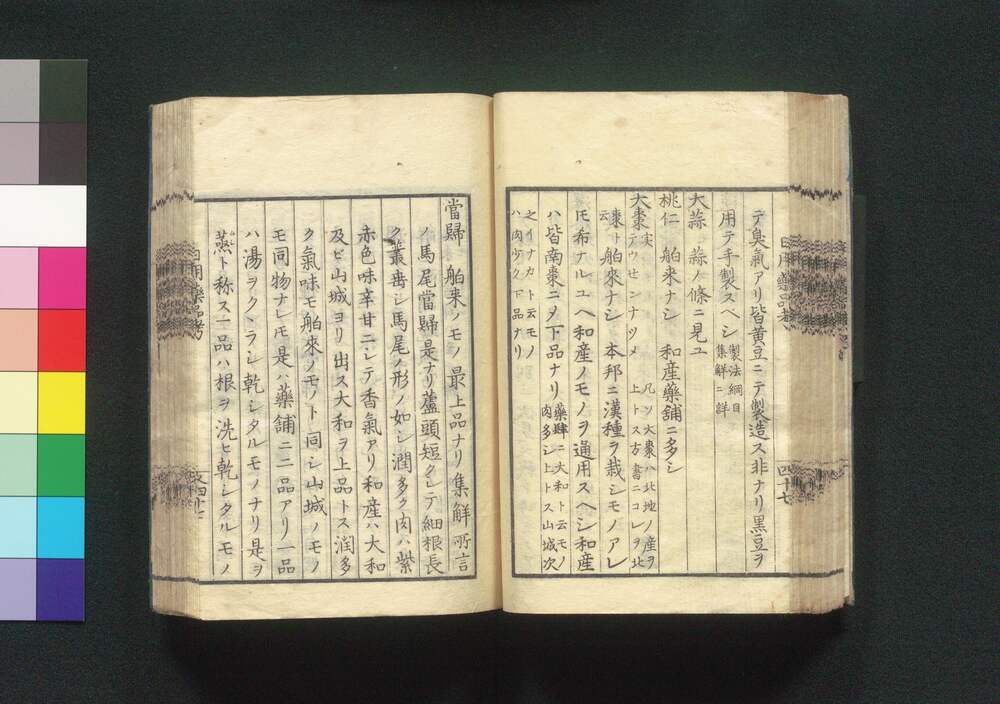 テ臭氣アリ皆黄豆ニテ製造ス非ナリ黒豆ヲ
用テ手製スベシ 製法綱目
集解ニ詳
大蒜 蒜ノ條ニ見ユ
桃仁 舶来ナシ 和産藥舗ニ多シ
大棗 実
テウセンナツメ 凡ソ大棗ハ北地ノ産ヲ
上トス方書ニコレヲ北
棗ト
云 舶來ナシ 本邦ニ漢種ヲ栽シモノアレ
𪜈希ナルユヘ和産ノモノヲ通用スヘシ和産
ハ皆南棗ニメ下品ナリ 藥肆ニ大和ト云モノ
肉多シ上トス山城次
之イナカト云モノ
ハ肉少ク下品ナリ
日用藥品考
四十七
當歸 舶来ノモノ最上品ナリ集解所言
ノ馬尾當歸是ナリ蘆頭短クシテ細根長
ク叢毋シ馬尾ノ形ノ如シ潤多ク肉ハ紫
赤色味辛甘ニシテ香氣アリ和産ハ大和
及ビ山城ヨリ出ス大和ヲ上品トス潤多
ク氣味モ舶來ノモノト同シ山城ノモノ
モ同物ナレ𪜈是ハ藥舗ニ二品アリ一品
ハ湯ヲクヽラシ乾シタルモノナリ是ヲ
蒸ト称ス一品ハ根ヲ洗ヒ乾シタルモノ
日用藥品考